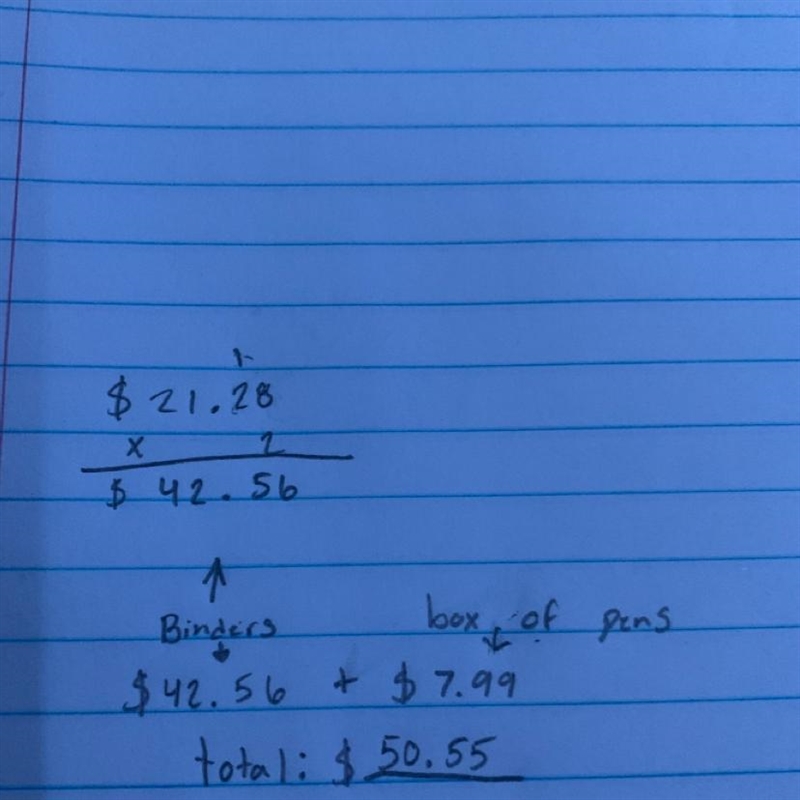 1
$ 21.28
x 2
$ 42.56
Binders
box of pens
$42.56 + $ 7.99
total: $ 50.55